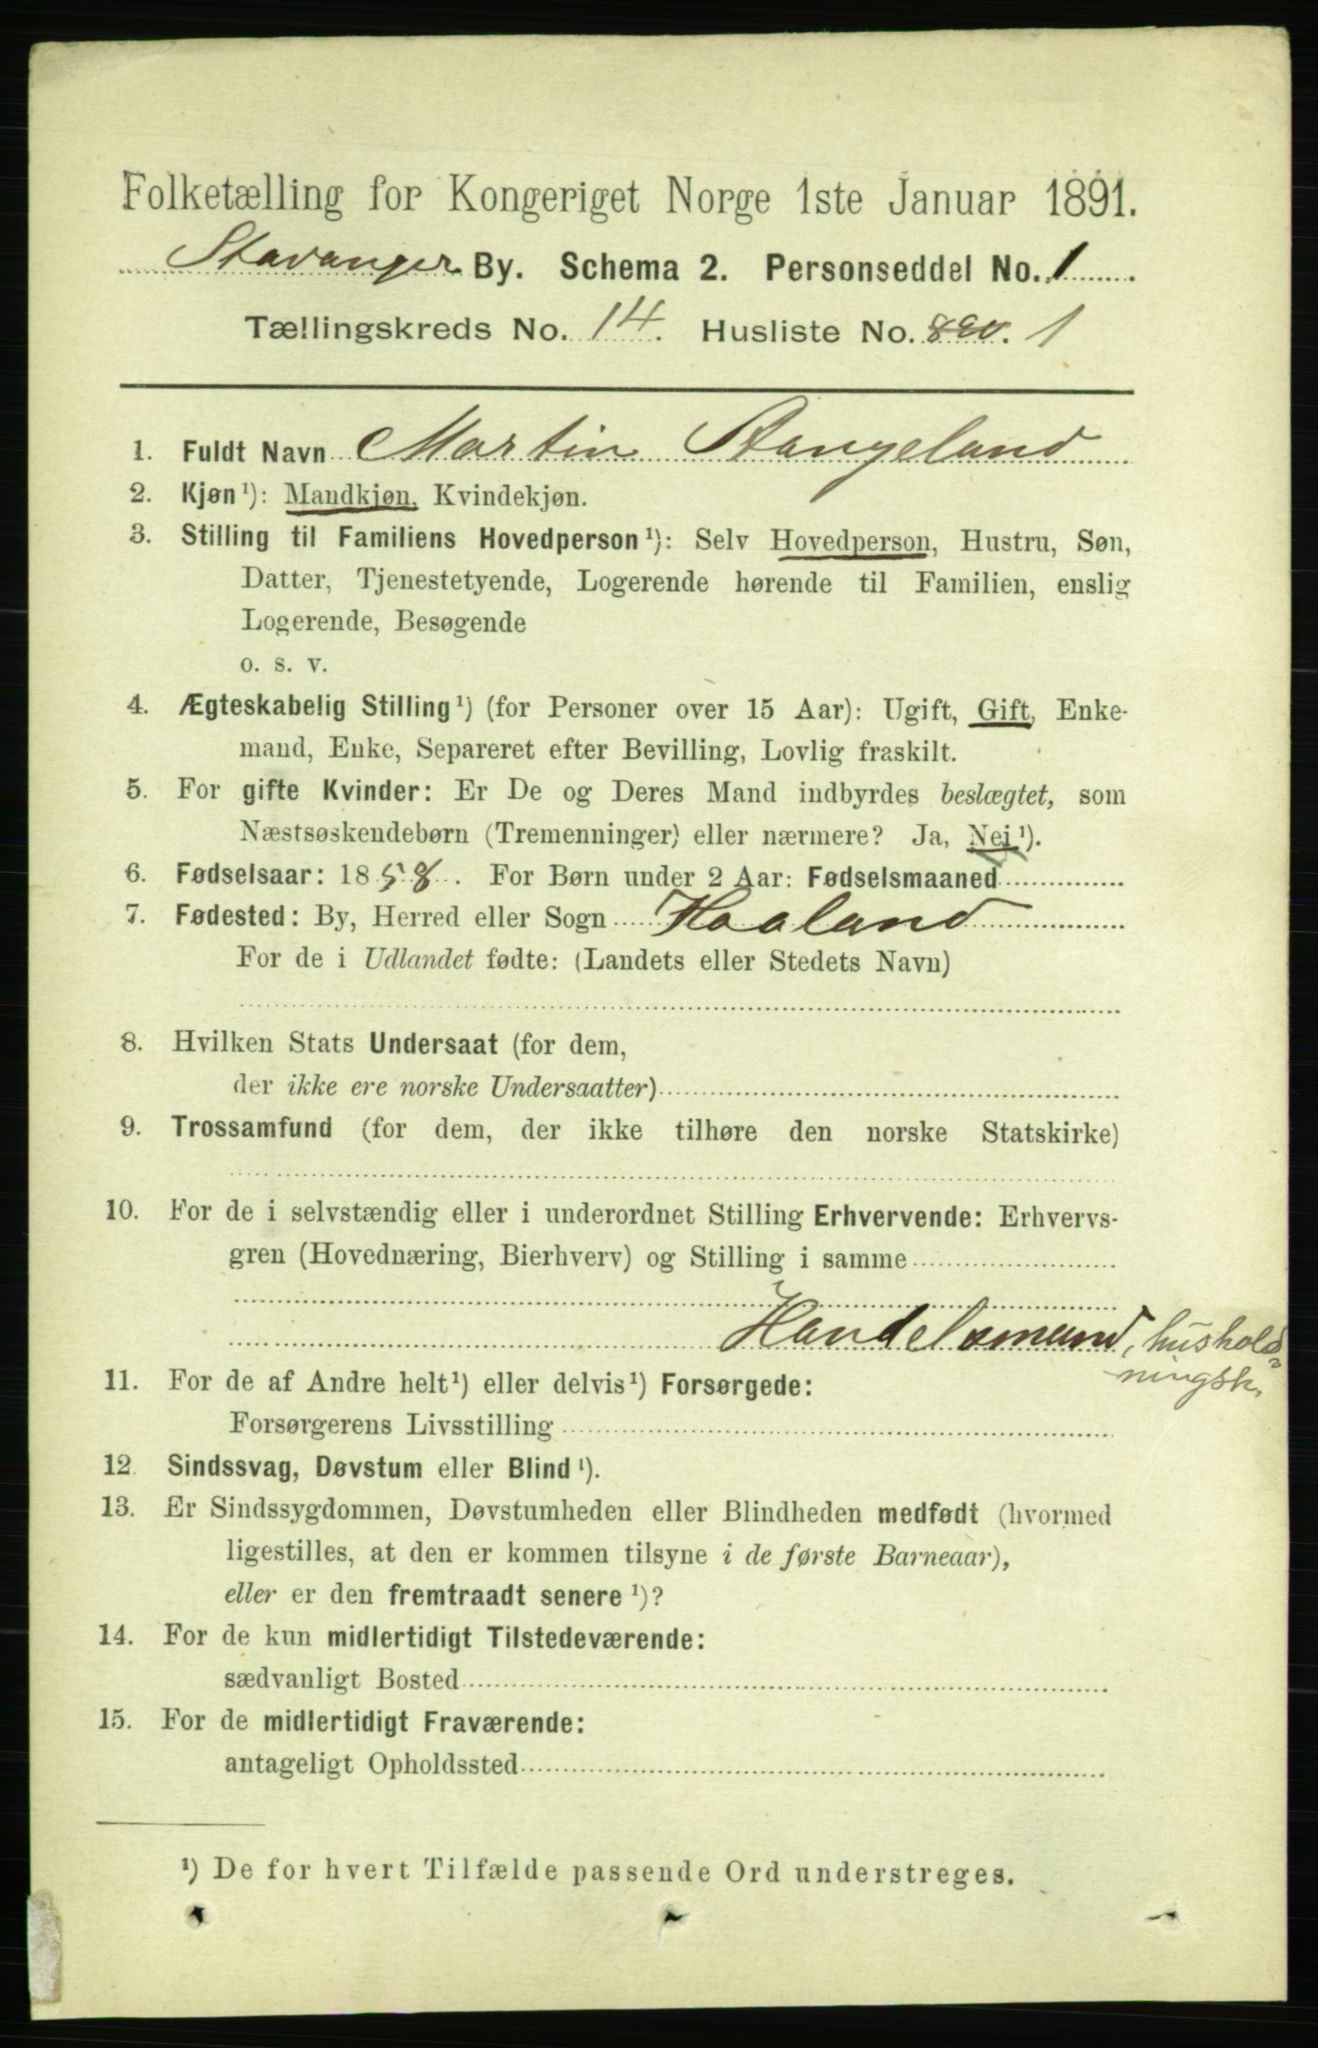 Folketælling for Kongeriget Norge 1ste Januar 1891.
Stavanger By. Schema 2. Personseddel No. 1
Tællingskreds No. 14. Husliste No. 890. 1
1. Fuldt Navn Martin Stangeland
2. Kjøn ¹): Mandkjøn, Kvindekjøn.
3. Stilling til Familiens Hovedperson ¹): Selv Hovedperson, Hustru, Søn,
Datter, Tjenestetyende, Logerende hørende til Familien, enslig
Logerende, Besøgende
o. s. v.
4. Ægteskabelig Stilling ¹) (for Personer over 15 Aar): Ugift, Gift, Enke-
mand, Enke, Separeret efter Bevilling, Lovlig fraskilt.
5. For gifte Kvinder: Er De og Deres Mand indbyrdes beslægtet, som
Næstsøskendebørn (Tremenninger) eller nærmere? Ja, Nei ¹).
6. Fødselsaar: 1858. For Børn under 2 Aar: Fødselsmaaned
7. Fødested: By, Herred eller Sogn Haaland
For de i Udlandet fødte: (Landets eller Stedets Navn)
8. Hvilken Stats Undersaat (for dem,
der ikke ere norske Undersaatter)
9. Trossamfund (for dem, der ikke tilhøre den norske Statskirke)
10. For de i selvstændig eller i underordnet Stilling Erhvervende: Erhvervs-
gren (Hovednæring, Bierhverv) og Stilling i samme
Handelsmand, hushold=
ningsk.
11. For de af Andre helt ¹) eller delvis ¹) Forsørgede:
Forsørgerens Livsstilling
12. Sindssvag, Døvstum eller Blind ¹).
13. Er Sindssygdommen, Døvstumheden eller Blindheden medfødt (hvormed
ligestilles, at den er kommen tilsyne i de første Barneaar),
eller er den fremtraadt senere ¹)?
14. For de kun midlertidigt Tilstedeværende:
sædvanligt Bosted
15. For de midlertidigt Fraværende:
antageligt Opholdssted
¹) De for hvert Tilfælde passende Ord understreges.